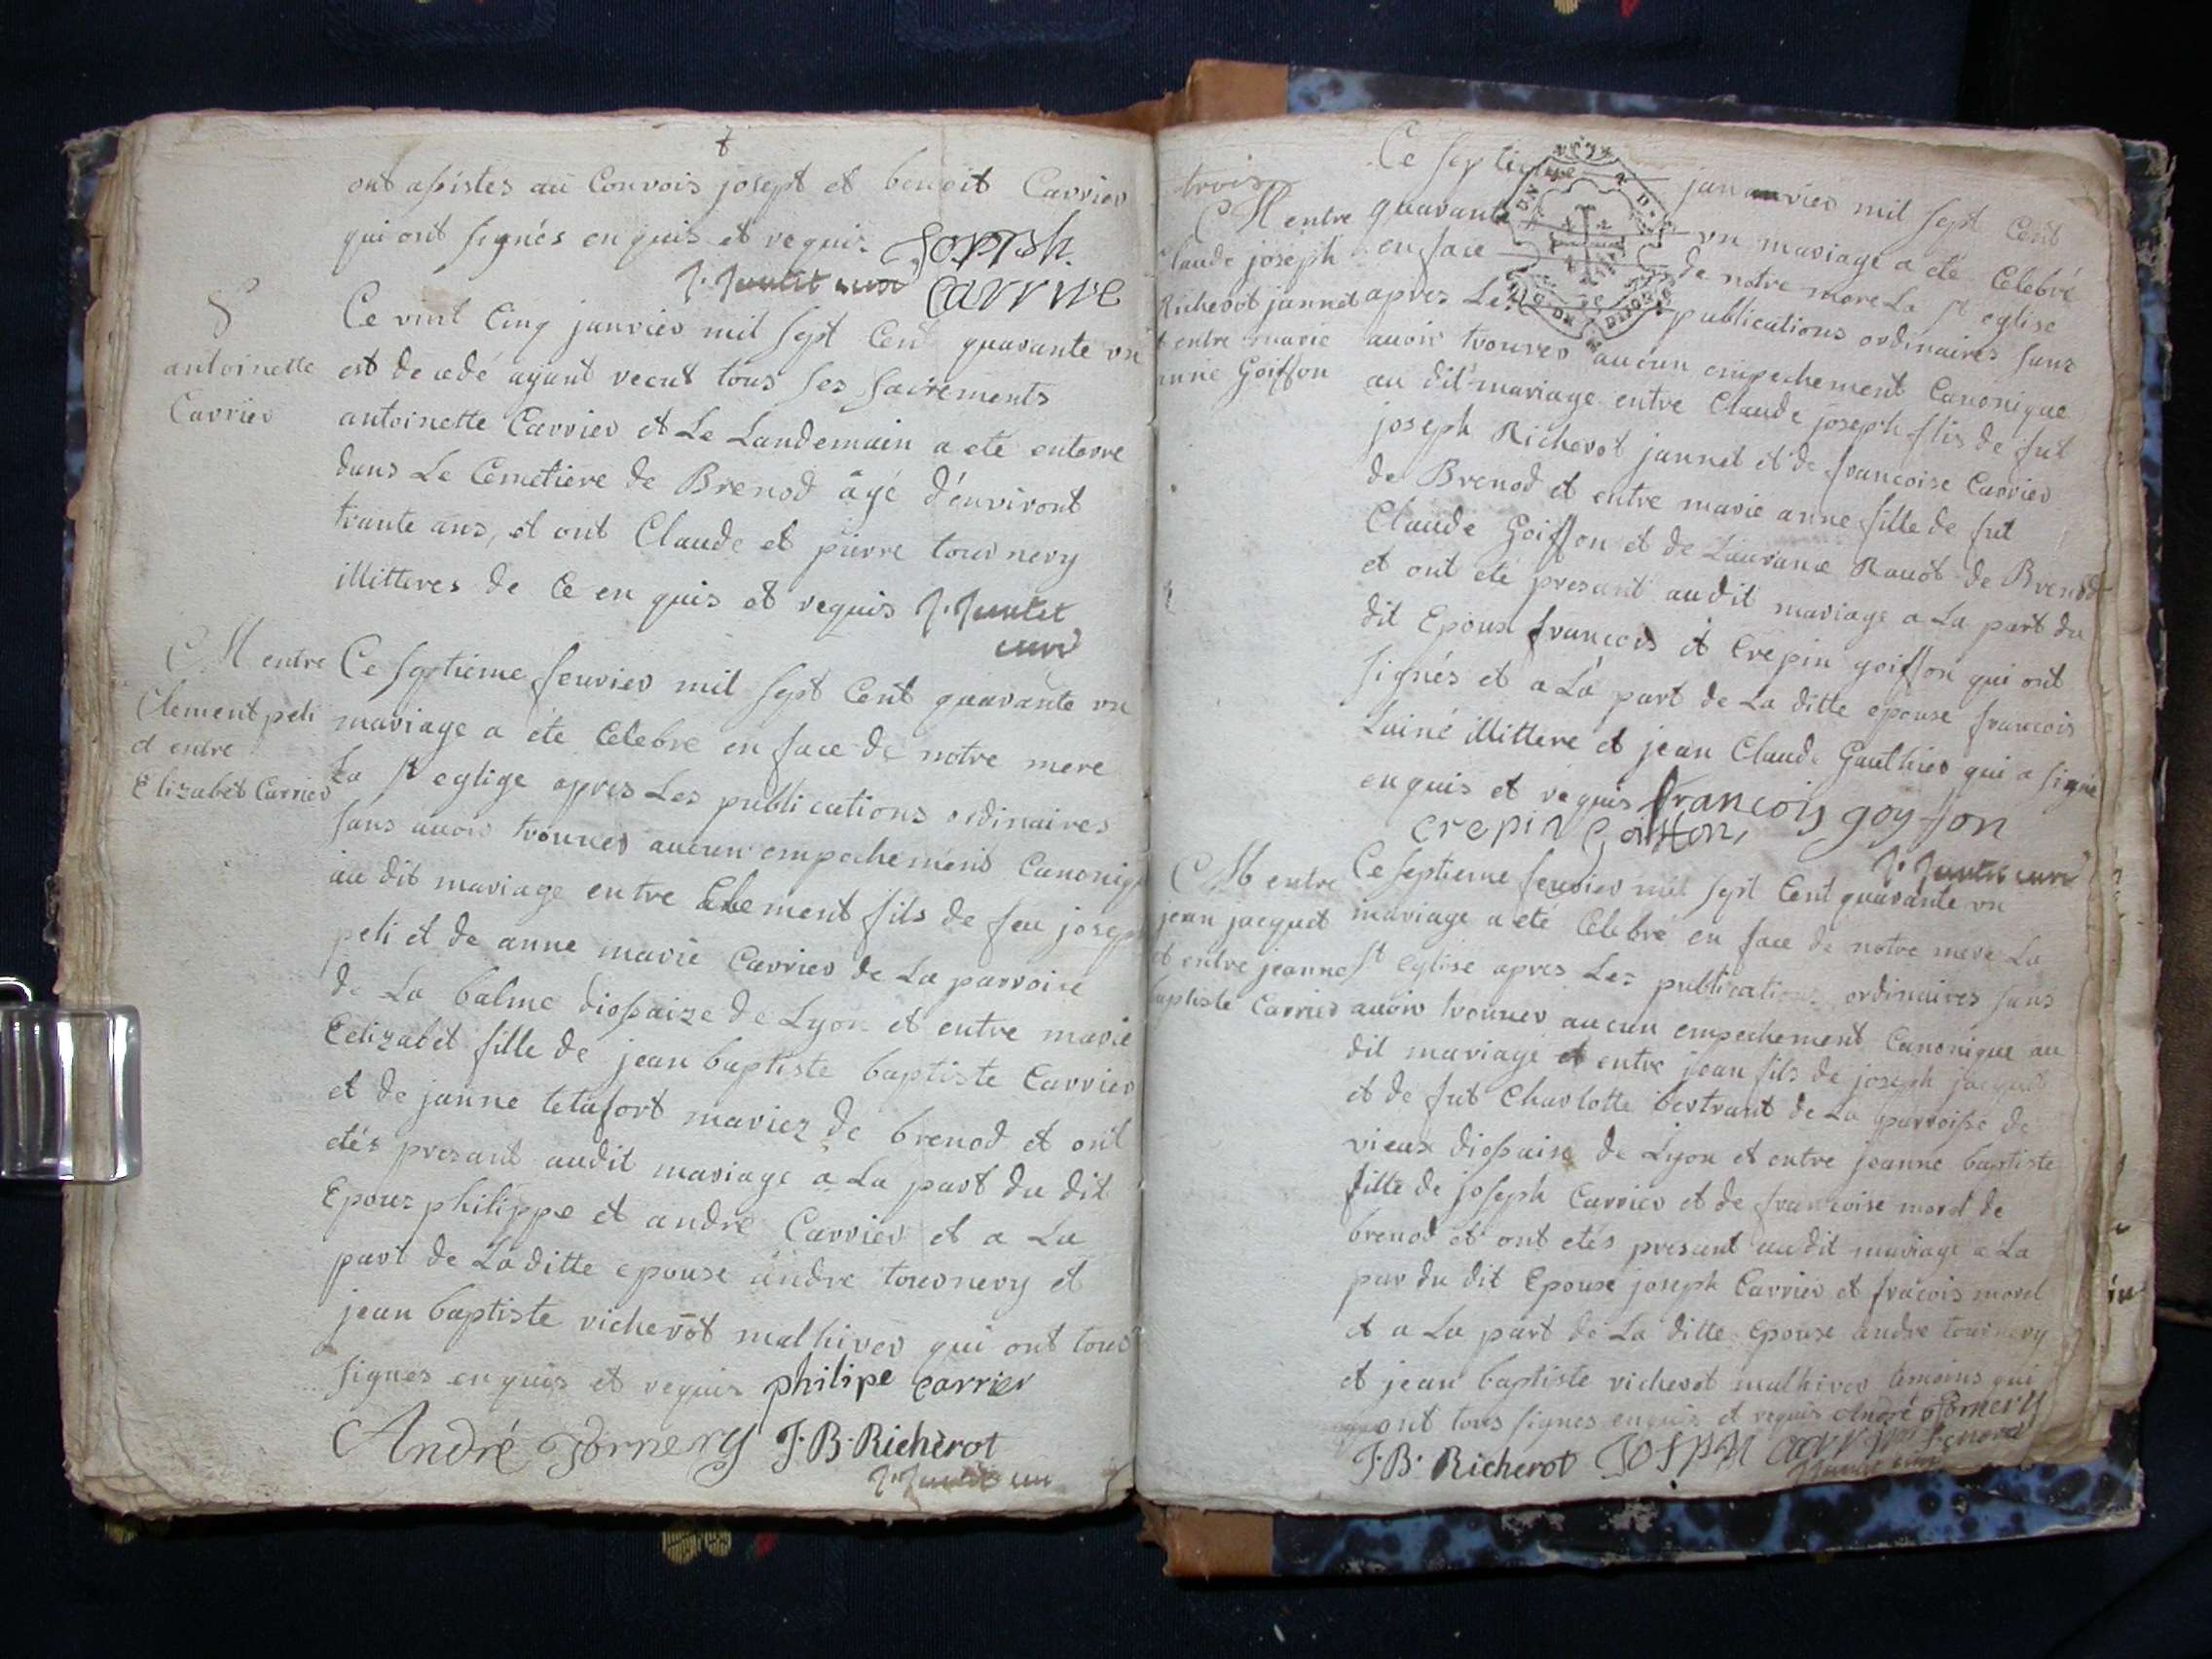 ont assistes au Convois josept et benoit Carrier
qui ont signés enquis et requis. Joseph
Carrier
S
antoinette
Carrier
Ce vint cinq janvier mil sept Cent quarante un
est decedé ayant recut tous ses sacrements
antoinette Carrier et Le Landemain a eté enterre
dans Le Cemetiere de Brenod âgé d'environt
trante ans, et ont Claude et pierre tournery
illitteres de Ce enquis et requis
curé
M entre
Clement peli
et entre
Elizabet Carrier
Ce septieme fevrier mil sept Cent quarante un
mariage a ete Celebre en face de notre mere
La st eglige apres Les publications ordinaires
sans avoir trouver aucun empechement Canoniq
au dit mariage entre Clement fils de feu josep
peli et de anne marie Carrier de La parroise
de La balme diossaize de Lyon et entre marie
Eelizabet fille de jean baptiste baptiste Carrier
et de janne tetafort mariez de brenod et ont
etés presant audit mariage a La part du dit
Epouz philippe et andre Carrier et a La
part de La ditte epouse andre tournery et
jean baptiste richerot malhiver qui ont tous
signes enquis et requis philipe carrier
André Tornery J.B.Richerot
trois
M entre
Claude joseph
Richerot jannet
et entre marie
anne Goiffon
Ce septieme janvier mil sept Cent
quarante un mariage a eté Celebré
en face de notre mere La st eglise
apres Les publications ordinaires sans
avoir trouver aucun empechement Canonique
au dit mariage entre Claude joseph flis de fut
joseph Richerot jannet et de francoise Carrier
de Brenod et entre marie anne fille de fut
Claude Goiffon et de Laurance Ravot de Brenod
et ont eté presant audit mariage a La part du
dit Epoux francois et Crepin goiffon qui ont
signés et a La part de La ditte epouse francois
Lainé illittere et jean Claude Gauthier qui a signé
enquis et requis francois goyfon
crepin Goiffon
M entre
jean jacquet
et entre jeanne
baptiste Carrier
Ce septieme fevrier mil sept Cent quarante un
mariage a eté Celebré en face de notre mere La
st eglise apres Les publications ordinaires sans
avoir trouver aucun empechement Canonique au
dit mariage et entre jean fils de joseph jacquet
et de fut Charlotte bertrant de La parroisse de
vieux diossaise de Lyon et entre jeanne baptiste
fille de joseph Carrier et de francoise morel de
brenod et ont etés presant audit mariage a La
par du dit Epouse joseph Carrier et fracois morel
et a La part de La ditte Epouse andre tournery
et jean baptiste richerot malhiver temoins qui
ont tous signes enquis et requis André Tornery
J.B. Richerot